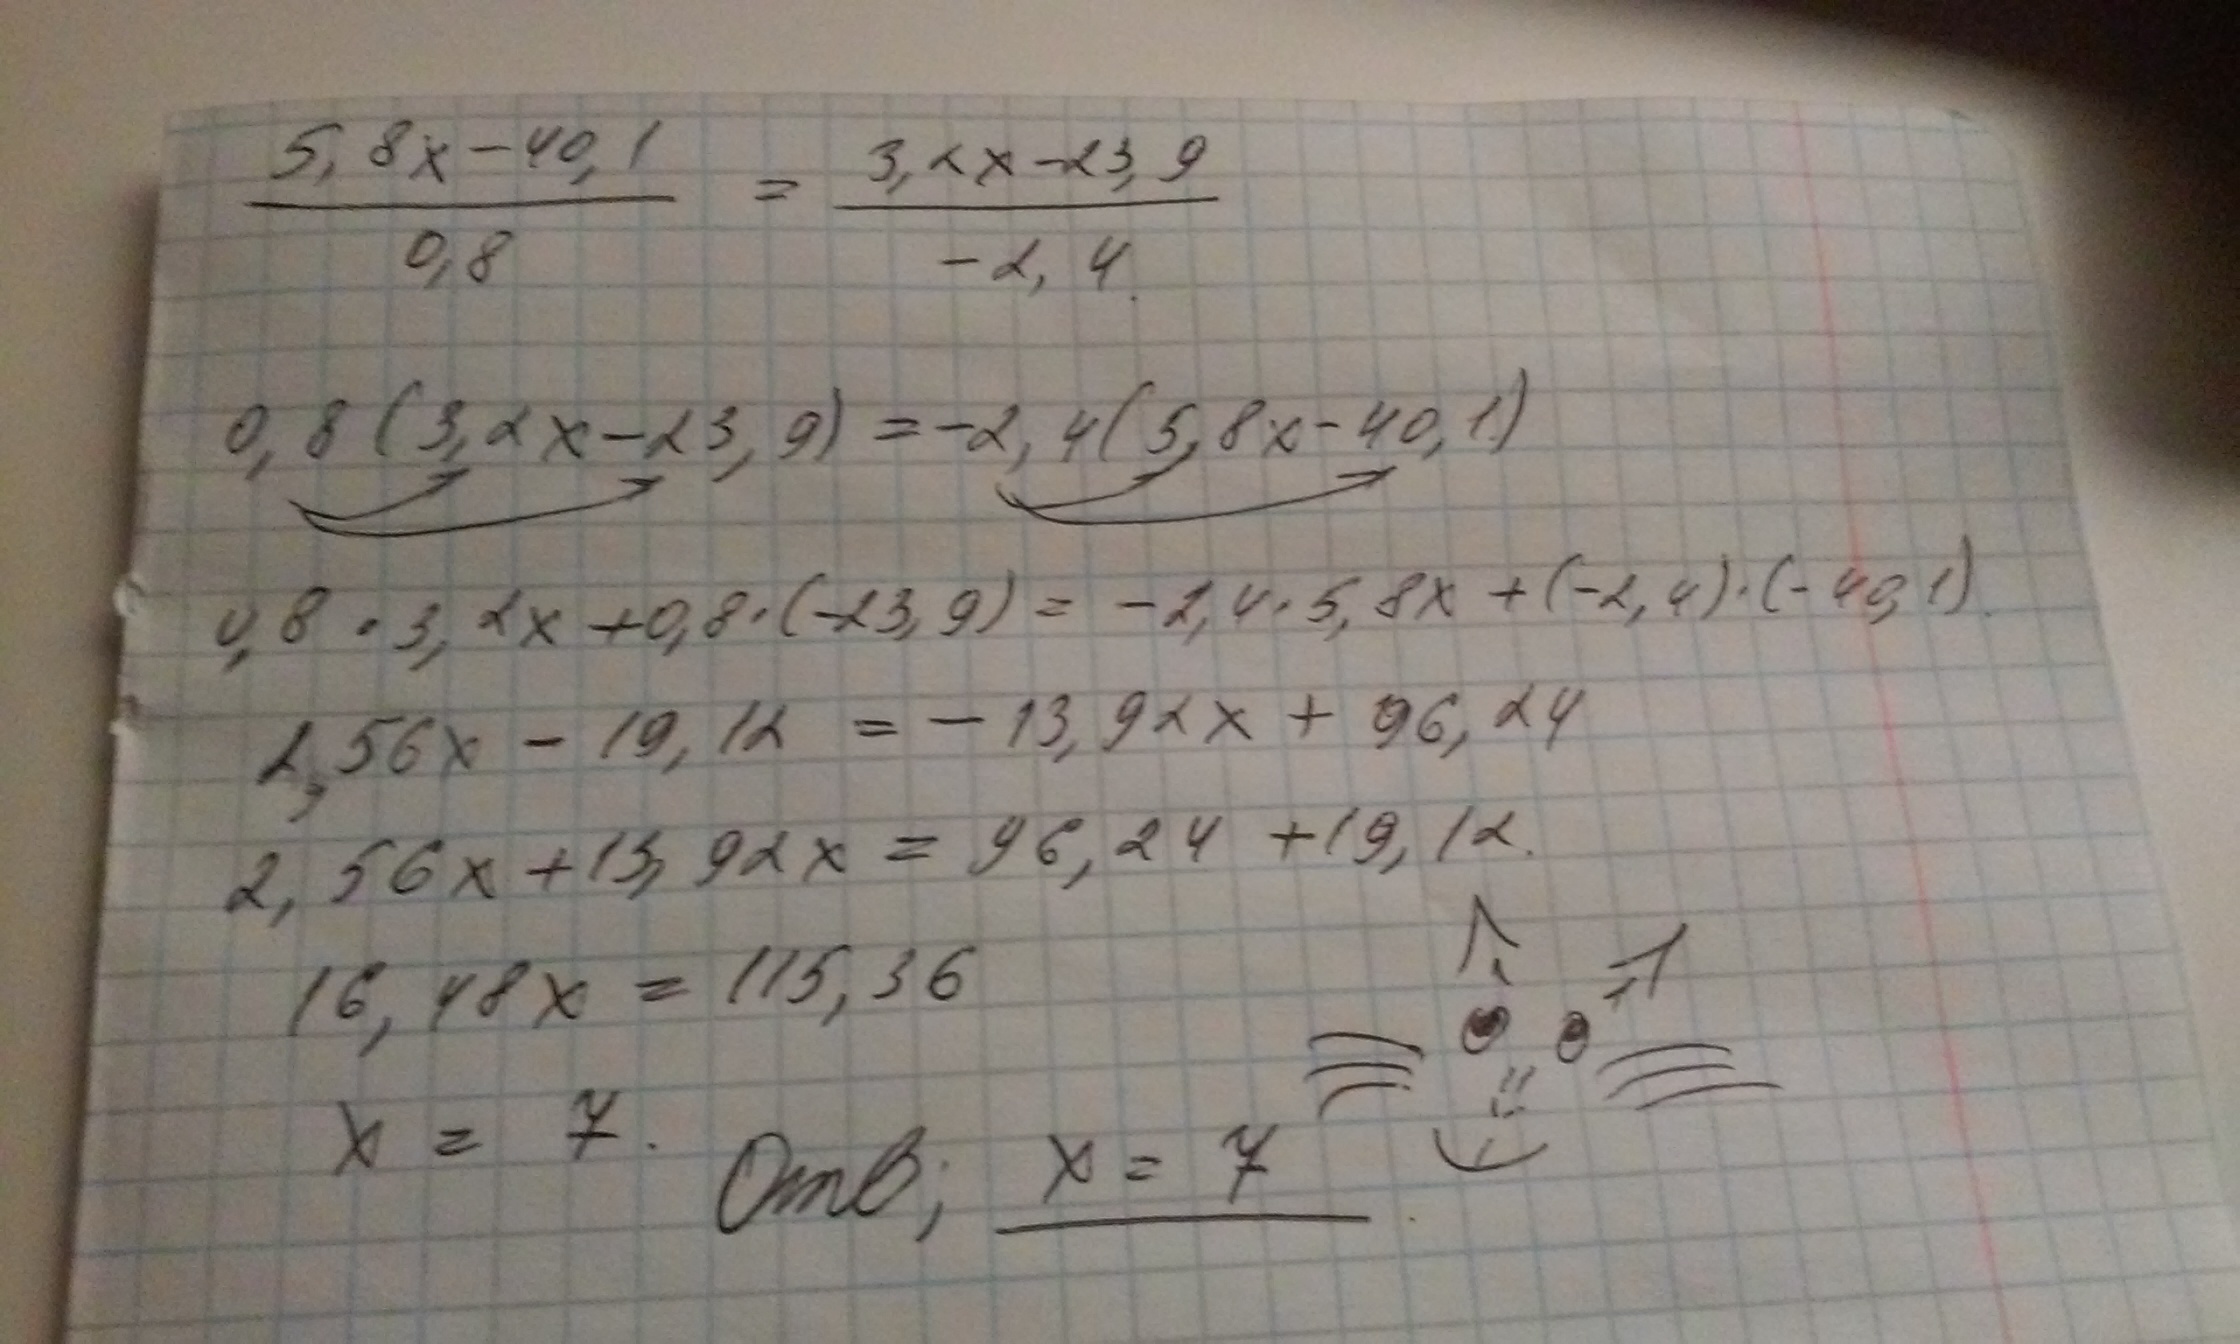 5,8x-40,1 / 0,8 = 3,2x-23,9 / -2,4.
0,8(3,2x-23,9)=-2,4(5,8x-40,1)
0,8·3,2x+0,8·(-23,9)=-2,4·5,8x+(-2,4)·(-40,1).
2,56x-19,12=-13,92x+96,24
2,56x+13,92x=96,24+19,12.
16,48x=115,36
x=7.
Отв; x=7